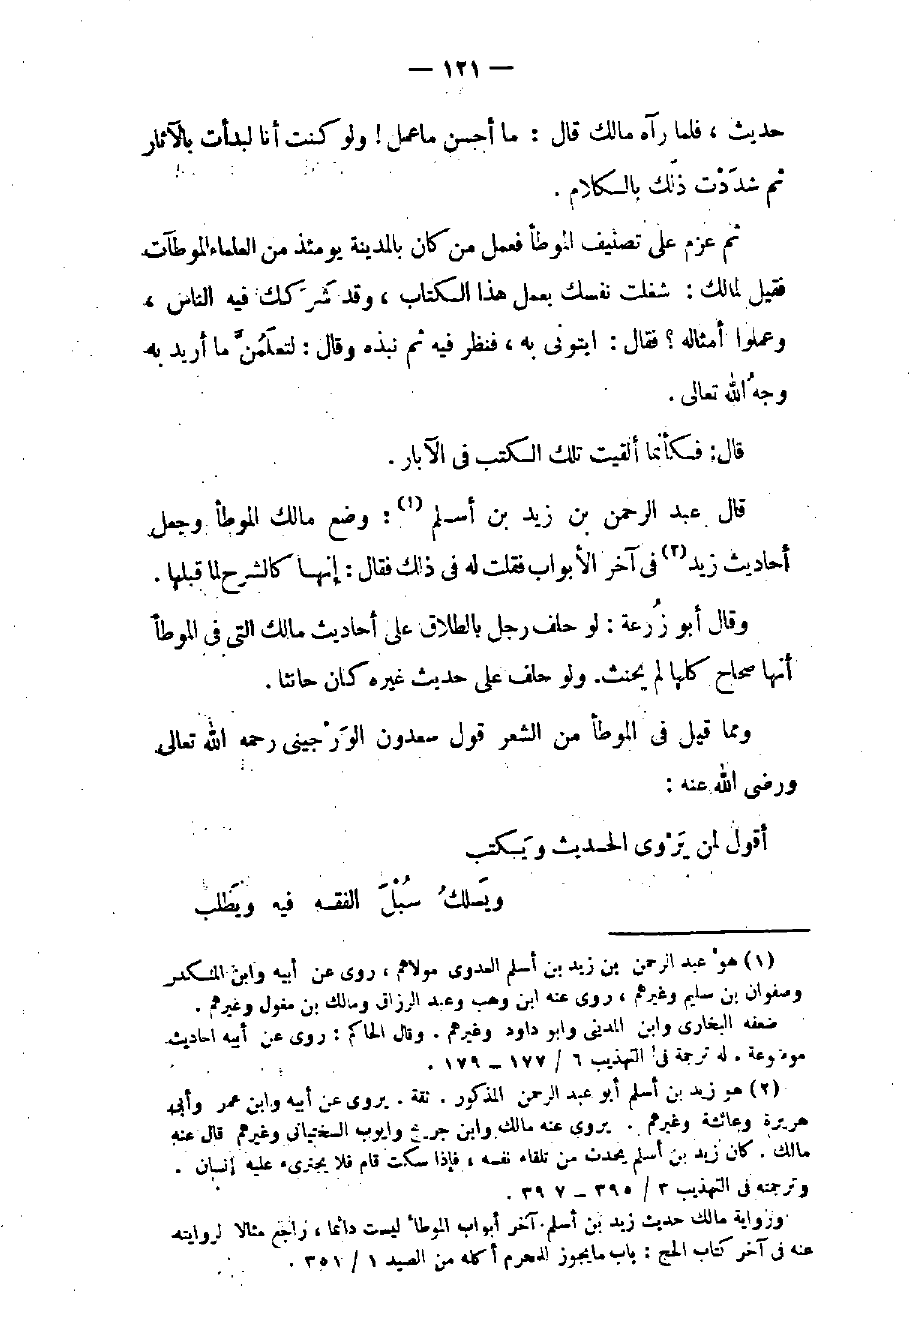 — ١٢١ —
حديث ، فلما رآه مالك قال : ما أحسن ماعمل ! ولو كنت أنا لبدأت بالآثار
ثم شدَدْت ذلك بالكلام .
ثم عزم على تصنيف الموطأ فعمل من كان بالمدينة يومئذ من العلماء الموطآت
فقيل لمالك : شغلت نفسك بعمل هذا الكتاب ، وقد شَرَكك فيه الناس ،
وعملوا أمثاله ؟ فقال : ايتونى به ، فنظر فيه ثم نبذه وقال : لتعلَمُنَّ ما أريد به
وجهُ الله تعالى .
قال: فكأنما ألقيت تلك الكتب فى الآبار .
قال عبد الرحمن بن زيد بن أسلم (١) : وضع مالك الموطأ وجعل
أحاديث زيد (٢) فى آخر الأبواب فقلت له فى ذلك فقال : إنها كالشرح لما قبلها .
وقال أبو زُرعة : لو حلف رجل بالطلاق على أحاديث مالك التى فى الموطأ
أنها صحاح كلها لم يحنث. ولو حلف على حديث غيره كان حانثا .
ومما قيل فى الموطأ من الشعر قول سعدون الوَرْجينى رحمه الله تعالى
ورضى الله عنه :
أقول لمن يَرْوى الحديث ويَكتب
ويَسلكُ سُبْلَ الفقه فيه ويَطلب
(١) هو عبد الرحمن بن زيد بن أسلم العدوى مولاهم ، روى عن أبيه وابن المنكدر
وصفوان بن سليم وغيرهم ، روى عنه ابن وهب وعبد الرزاق ومالك بن مغول وغيرهم .
ضعفه البخارى وابن المدينى وابو داود وغيرهم . وقال الحاكم : روى عن أبيه احاديث
موضوعة . له ترجمة فى التهذيب ٦ / ١٧٧ – ١٧٩ .
(٢) هو زيد بن أسلم أبو عبد الرحمن المذكور . ثقة . يروى عن أبيه وابن عمر وأبى
هريرة وعائشة وغيرهم . يروى عنه مالك وابن جريج وايوب السختيانى وغيرهم قال عنه
مالك . كان زيد بن أسلم يحدث من تلقاء نفسه ، فإذا سكت قام فلا يجترىء عليه إنسان .
وترجمته فى التهذيب ٣ / ٣٩٥ – ٣٩٧ .
ورواية مالك حديث زيد بن أسلم آخر أبواب الموطأ ليست دائما ، راجع مثالا لروايته
عنه فى آخر كتاب الحج : باب مايجوز للمحرم أكله من الصيد ١ / ٣٥١ .